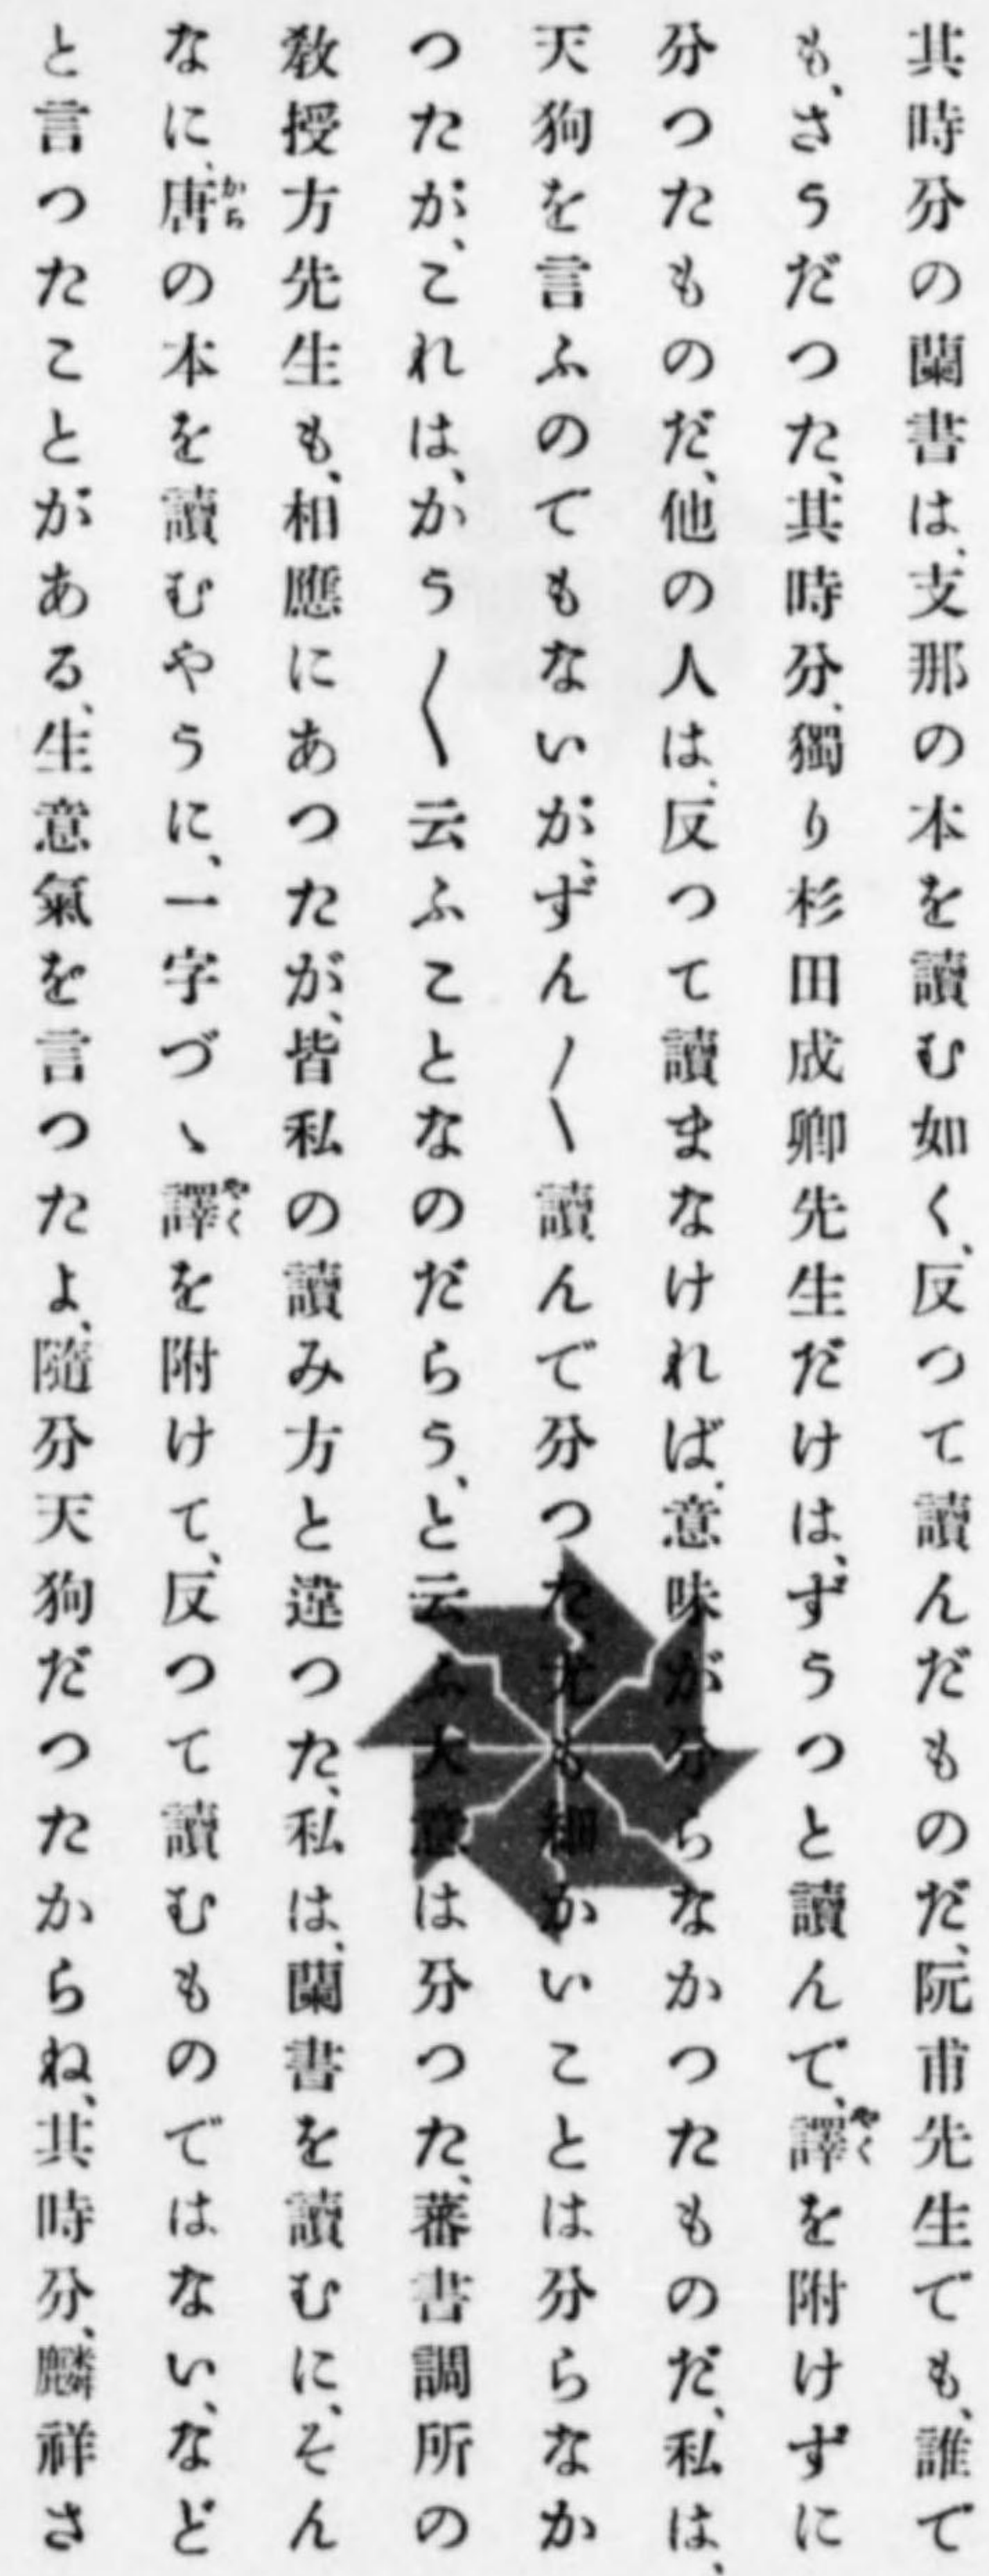 其時分の蘭書は、支那の本を讀む如く、反つて讀んだものだ、阮甫先生でも、誰で
も、さうだつた、其時分、獨り杉田成卿先生だけは、ずうつと讀んで、譯を附けずに
分つたものだ、他の人は、反つて讀まなければ、意味が分らなかつたものだ、私は、
天狗を言ふのでもないが、ずん〱讀んで分つた、尤も細かいことは分らなか
つたが、これは、かう〱云ふことなのだらう、と云ふ大意は分つた、蕃書調所の
教授方先生も、相應にあつたが、皆私の讀み方と違つた、私は、蘭書を讀むに、そん
なに、唐の本を讀むやうに、一字づゝ譯を附けて、反つて讀むものではない、など
と言つたことがある、生意氣を言つたよ、隨分天狗だつたからね、其時分、麟祥さ